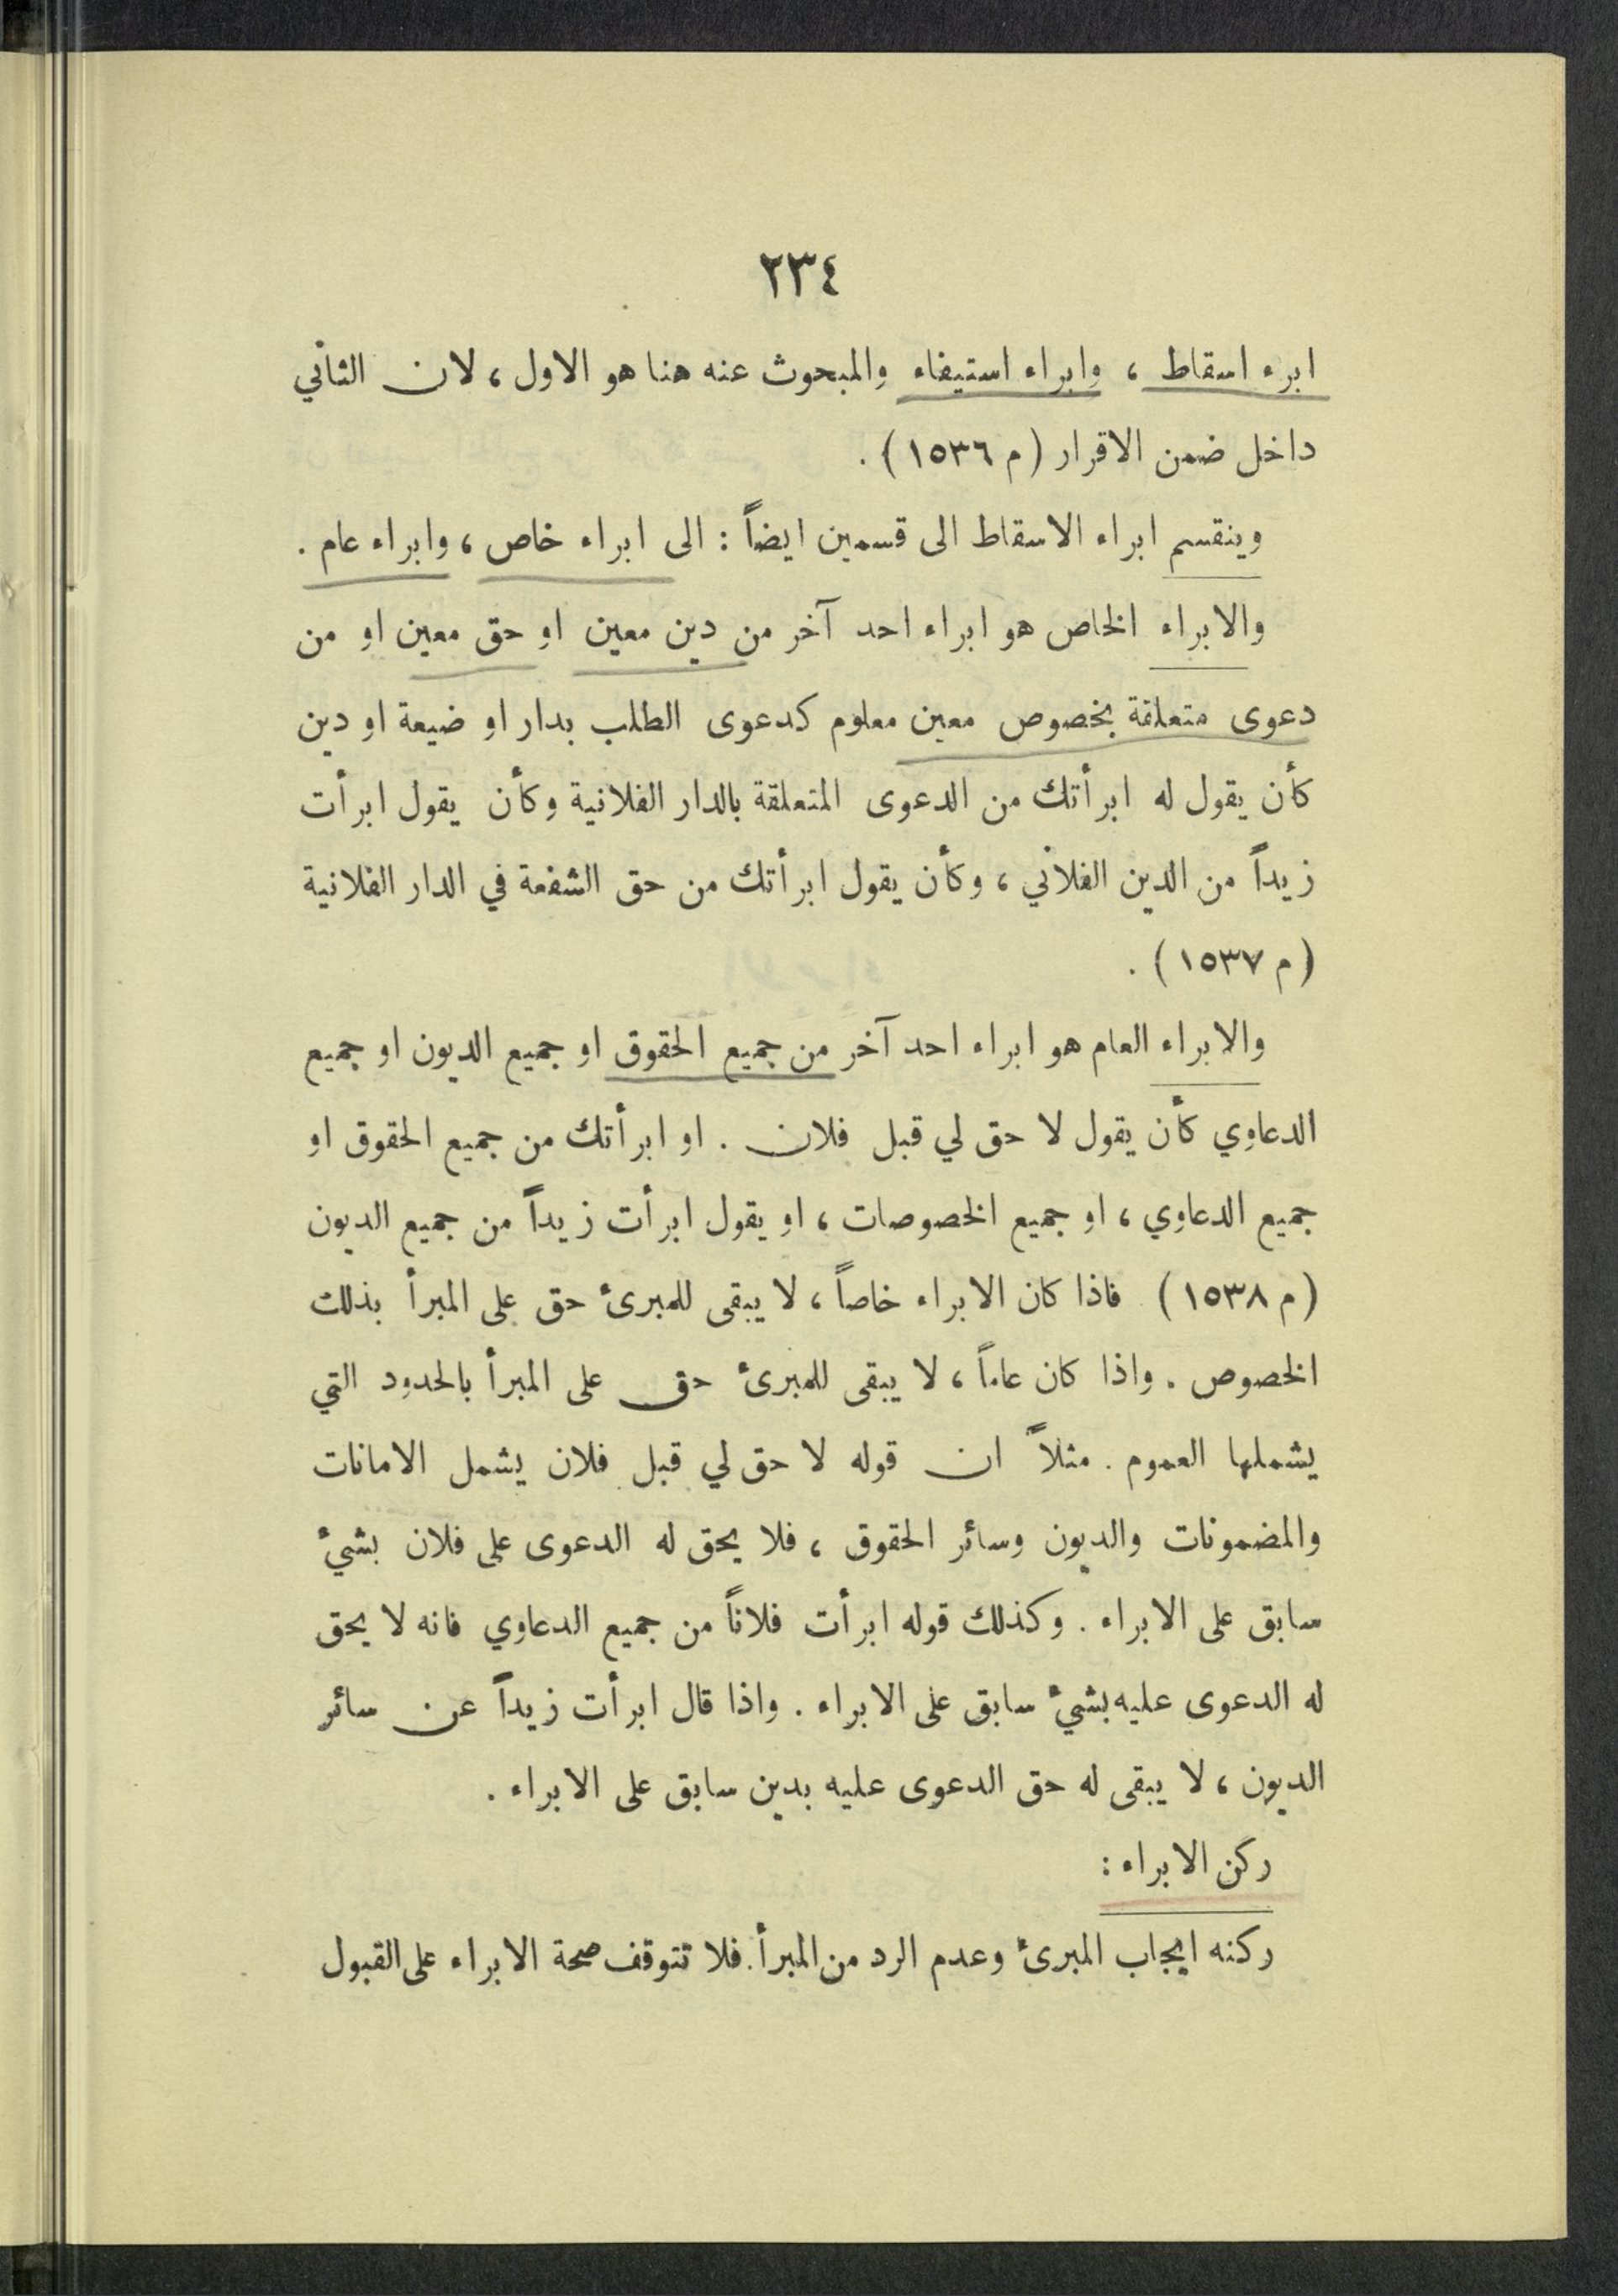 ٢٣٤
ابرء اسقاط ، وابراء استيفاء والمبحوث عنه هنا هو الاول ، لان الثاني
داخل ضمن الاقرار (م ١٥٣٦) .
وينقسم ابراء الاسقاط الى قسمين ايضاً : الى ابراء خاص ، وابراء عام .
والابراء الخاص هو ابراء احد آخر من دين معين او حق معين او من
دعوى متعلقة بخصوص معين معلوم كدعوى الطلب بدار او ضيعة او دين
كأن يقول له ابرأتك من الدعوى المتعلقة بالدار الفلانية وكأن يقول ابرأت
زيداً من الدين الفلاني ، وكأن يقول ابرأتك من حق الشفعة في الدار الفلانية
(م ١٥٣٧) .
والابراء العام هو ابراء احد آخر من جميع الحقوق او جميع الديون او جميع
الدعاوي كأن يقول لا حق لي قبل فلان . او ابرأتك من جميع الحقوق او
جميع الدعاوي ، او جميع الخصوصات ، او يقول ابرأت زيداً من جميع الديون
(م ١٥٣٨) فاذا كان الابراء خاصاً ، لا يبقى للمبرئ حق على المبرأ بذلك
الخصوص . واذا كان عاماً ، لا يبقى للمبرئ حق على المبرأ بالحدود التي
يشملها العموم . مثلاً ان قوله لا حق لي قبل فلان يشمل الامانات
والمضمونات والديون وسائر الحقوق ، فلا يحق له الدعوى على فلان بشيء
سابق على الابراء . وكذلك قوله ابرأت فلاناً من جميع الدعاوي فانه لا يحق
له الدعوى عليه بشيء سابق على الابراء . واذا قال ابرأت زيداً عن سائر
الديون ، لا يبقى له حق الدعوى عليه بدين سابق على الابراء .
ركن الابراء :
ركنه ايجاب المبرئ وعدم الرد من المبرأ . فلا تتوقف صحة الابراء على القبول